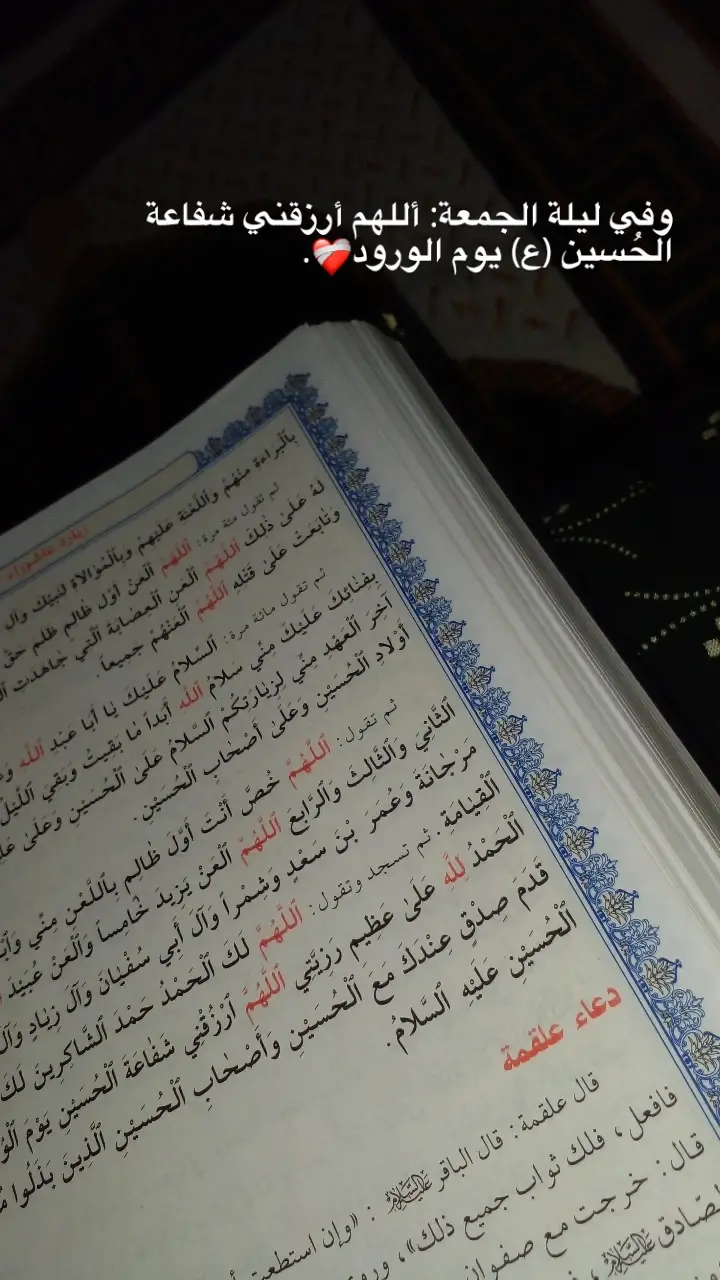 وفي ليلة الجمعة: أللهم أرزقني شفاعة
الحُسين (ع) يوم الورود❤️‍🩹.
زيارة عاشوراء
بِالْبَراءَةِ مِنْهُمْ وَاللَّعْنَةِ عَلَيْهِمْ وَبِالْمُوَالاةِ لِنَبِيِّكَ وَآلِ
ثم تقول مئة مرة: اَللّهُمَّ الْعَنْ أَوَّلَ ظَالِمٍ ظَلَمَ حَقَّ
لَهُ عَلىٰ ذٰلِكَ اَللّهُمَّ الْعَنِ الْعِصَابَةَ الَّتي جَاهَدَتِ
وَتَابَعَتْ عَلىٰ قَتْلِهِ اَللّهُمَّ الْعَنْهُمْ جَمِيعاً.
ثم تقول مائة مرة: اَلسَّلامُ عَلَيْكَ يَا أَبا عَبْدِ اللّٰهِ
بِفِنَائِكَ عَلَيْكَ مِنّي سَلامُ اللّٰهِ أَبَداً مَا بَقِيتُ وَبَقِيَ اللَّيْلُ
آخِرَ الْعَهْدِ مِنّي لِزِيَارَتِكُمْ اَلسَّلامُ عَلَى الْحُسَيْنِ وَعَلىٰ
أَوْلادِ الْحُسَيْنِ وَعَلىٰ أَصْحَابِ الْحُسَيْنِ.
ثم تقول: اَللّهُمَّ خُصَّ أَنْتَ أَوَّلَ ظَالِمٍ بِاللَّعْنِ مِنّي
الثَّانِيَ وَالثَّالِثَ وَالرَّابِعَ اَللّهُمَّ الْعَنْ يَزِيدَ خَامِساً وَالْعَنْ عُبَيْدَ
مَرْجَانَةَ وَعُمَرَ بْنَ سَعْدٍ وَشِمْراً وَآلَ أَبي سُفْيَانَ وَآلَ زِيَادٍ وَآلَ
الْقِيَامَةِ. ثم تسجد وتقول: اَللّهُمَّ لَكَ الْحَمْدُ حَمْدَ الشَّاكِرِينَ لَكَ
الْحَمْدُ لِلّٰهِ عَلىٰ عَظِيمِ رَزِيَّتي اَللّهُمَّ ارْزُقْني شَفَاعَةَ الْحُسَيْنِ يَوْمَ
قَدَمَ صِدْقٍ عِنْدَكَ مَعَ الْحُسَيْنِ وَأَصْحَابِ الْحُسَيْنِ الَّذِينَ بَذَلُوا
الْحُسَيْنِ عَلَيْهِ السَّلامُ.
دعاء علقمة
قال علقمة: قال الباقر عليه السلام: «وإن استطعت
فافعل، فلك ثواب جميع ذلك»،
قال: خرجت مع صفوان
الصّادق عليه السلام،